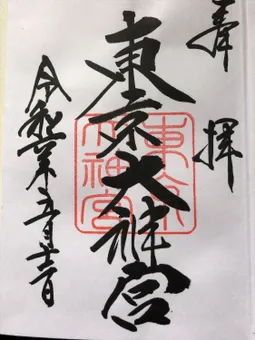 奉拝
東京大神宮
東京
大神宮
令和 年五月 日